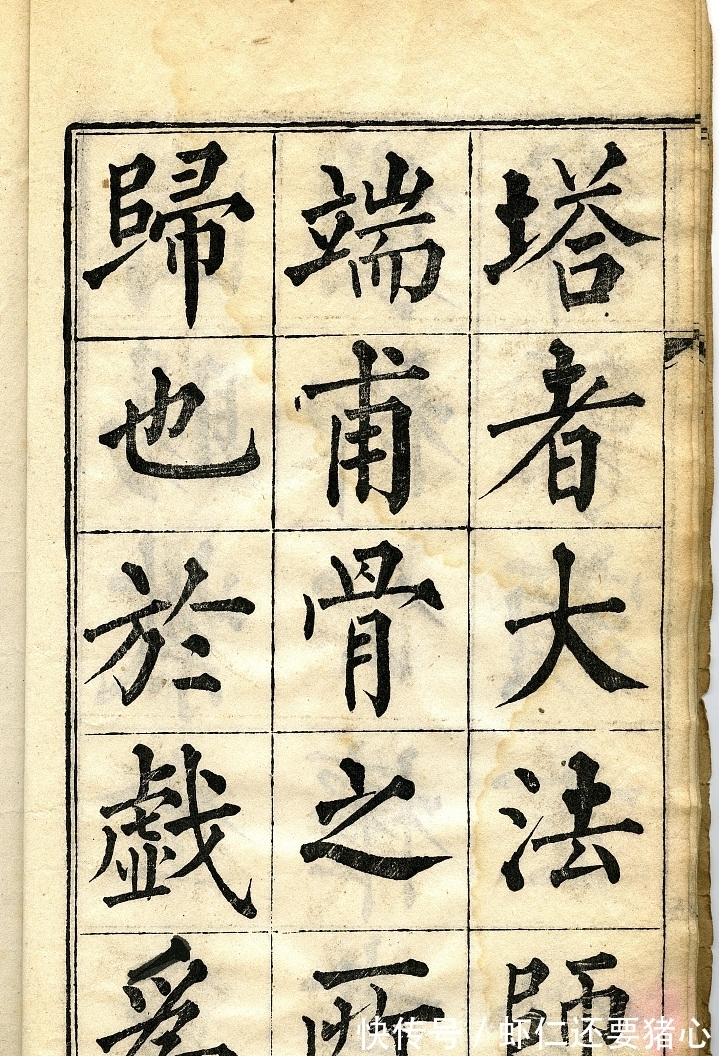 塔者大法師
端甫骨之所
歸也於戲爲
快传号 / 虾仁还要猪心